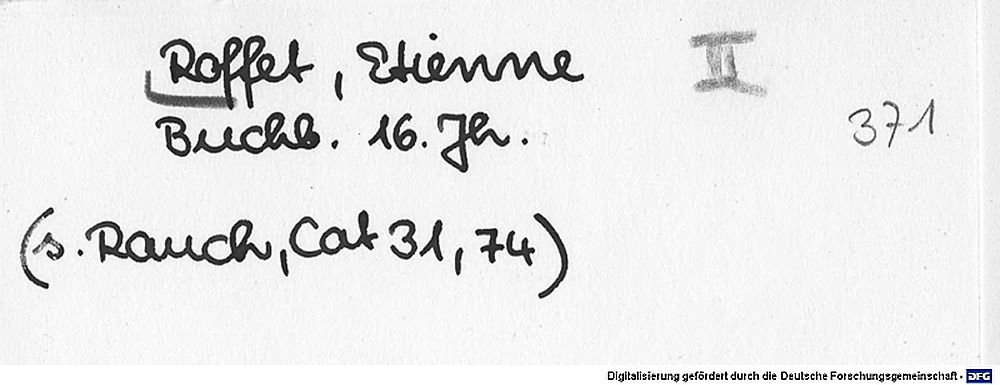 Roffet, Etienne II
Buchb. 16. Jh. 371
(s. Rauch, Cat 31, 74)
Digitalisierung gefördert durch die Deutsche Forschungsgemeinschaft - DFG